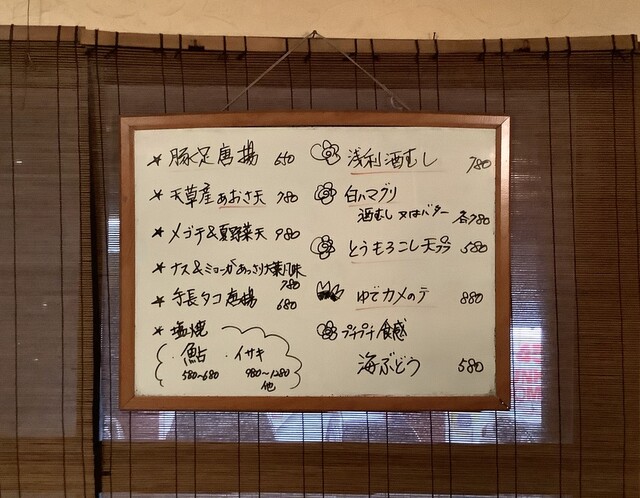 ★ 豚足唐揚 650
★ 天草産あおさ天 780
★ メゴチ&夏野菜天 980
★ ナス&ミョーガあっさり大葉風味
780
★ 手長タコ唐揚 680
★ 塩焼
・鮎 ・イサキ
580〜680 980〜1280
他
浅利酒むし 780
白ハマグリ
酒むし又はバター 各980
とうもろこし天ぷら 580
ゆでカメのテ 880
プチプチ食感
海ぶどう 580